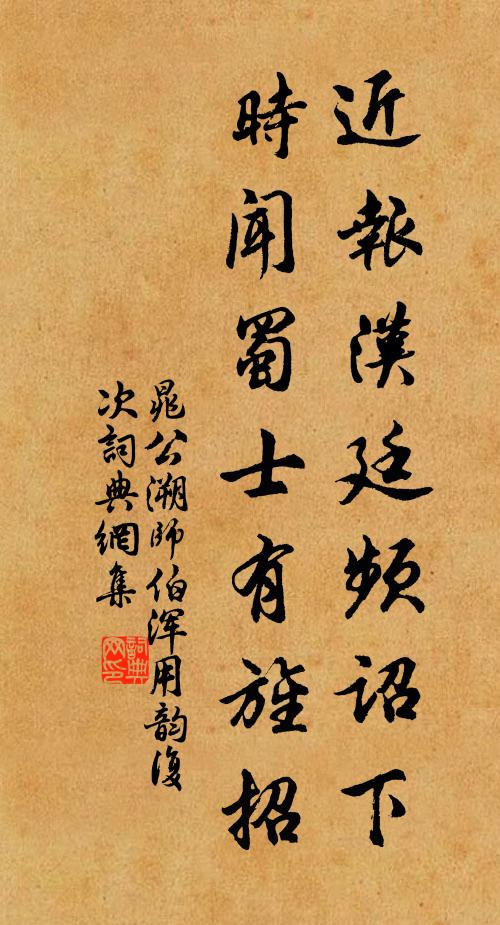 近報漢廷頻詔下
時聞蜀士有旌招
晁公溯師伯渾用韵復
次詞典網集
詞典网印